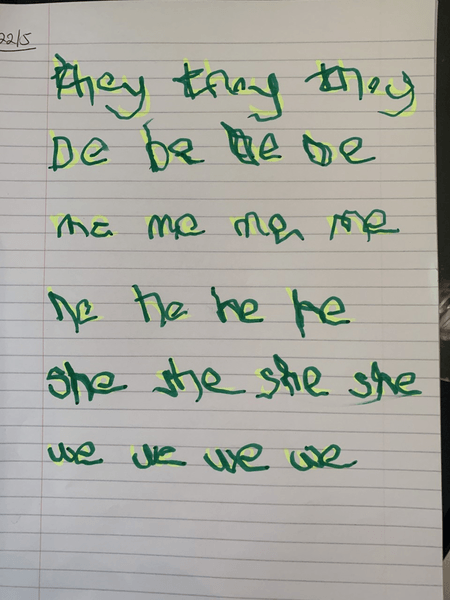 22/5
they they they
be be be be
me me me me
he he he he
she she she she
we we we we